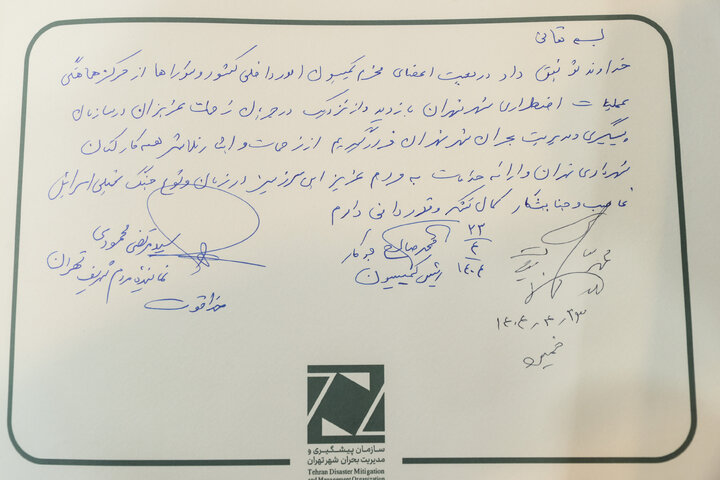 بسمه تعالی
خداوند توفیق داد در معیت اعضای محترم کمیسیون امور داخلی کشور و شوراها از مرکز هماهنگی
عملیات اضطراری شهر تهران بازدید و از نزدیک در جریان زحمات عزیزان در سازمان
پیشگیری و مدیریت بحران شهر تهران قرار گیریم از زحمات و تلاش همه کارکنان
شهرداری تهران و ارائه خدمات به مردم عزیز این سرزمین در زمان وقوع جنگ تحمیلی اسرائیل
غاصب و جنایتکار کمال تشکر و قدردانی دارم
سید مرتضی محمودی
نماینده مردم شریف تهران
خدا قوت
محمد صالح جوکار
رئیس کمیسیون
۲۳
۴
۱۴۰۴
۱۴۰۴٫۴٫۲۳
سازمان پیشگیری و
مدیریت بحران شهر تهران
Tehran Disaster Mitigation
and Management Organization